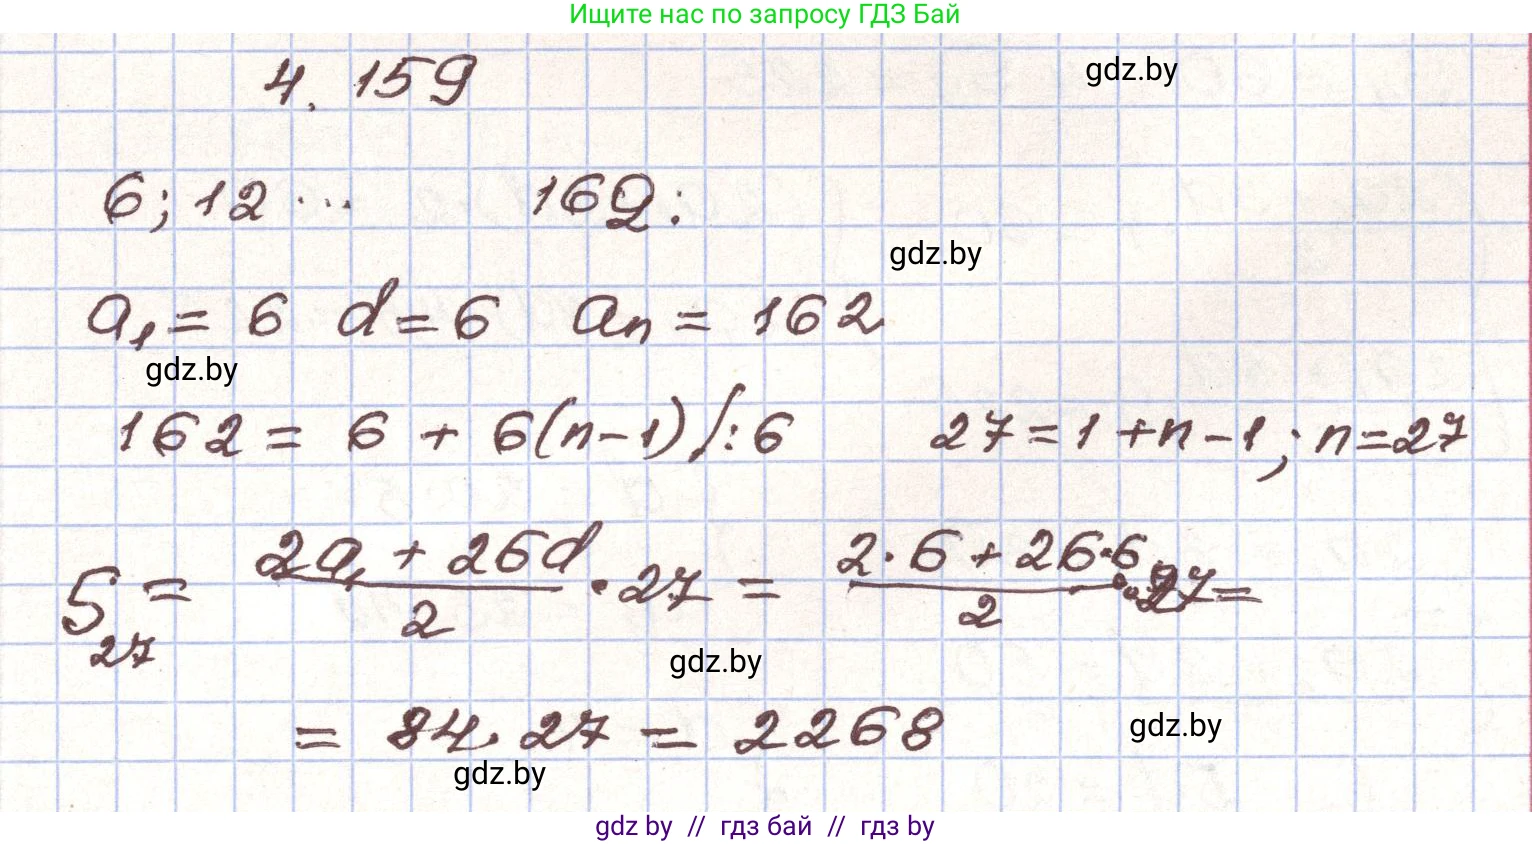 Ищите нас по запросу ГДЗ Бай
4.159
gdz.by
6; 12 ... 162:
gdz.by
a₁ = 6 d = 6 aₙ = 162
gdz.by
162 = 6 + 6(n-1) /:6 27 = 1 + n - 1; n = 27
S₂₇ = (2a₁ + 26d)/2 · 27 = (2·6 + 26·6)/2 · 27 =
gdz.by
= 84 · 27 = 2268
gdz.by
gdz.by
gdz by // гдз бай // гдз by